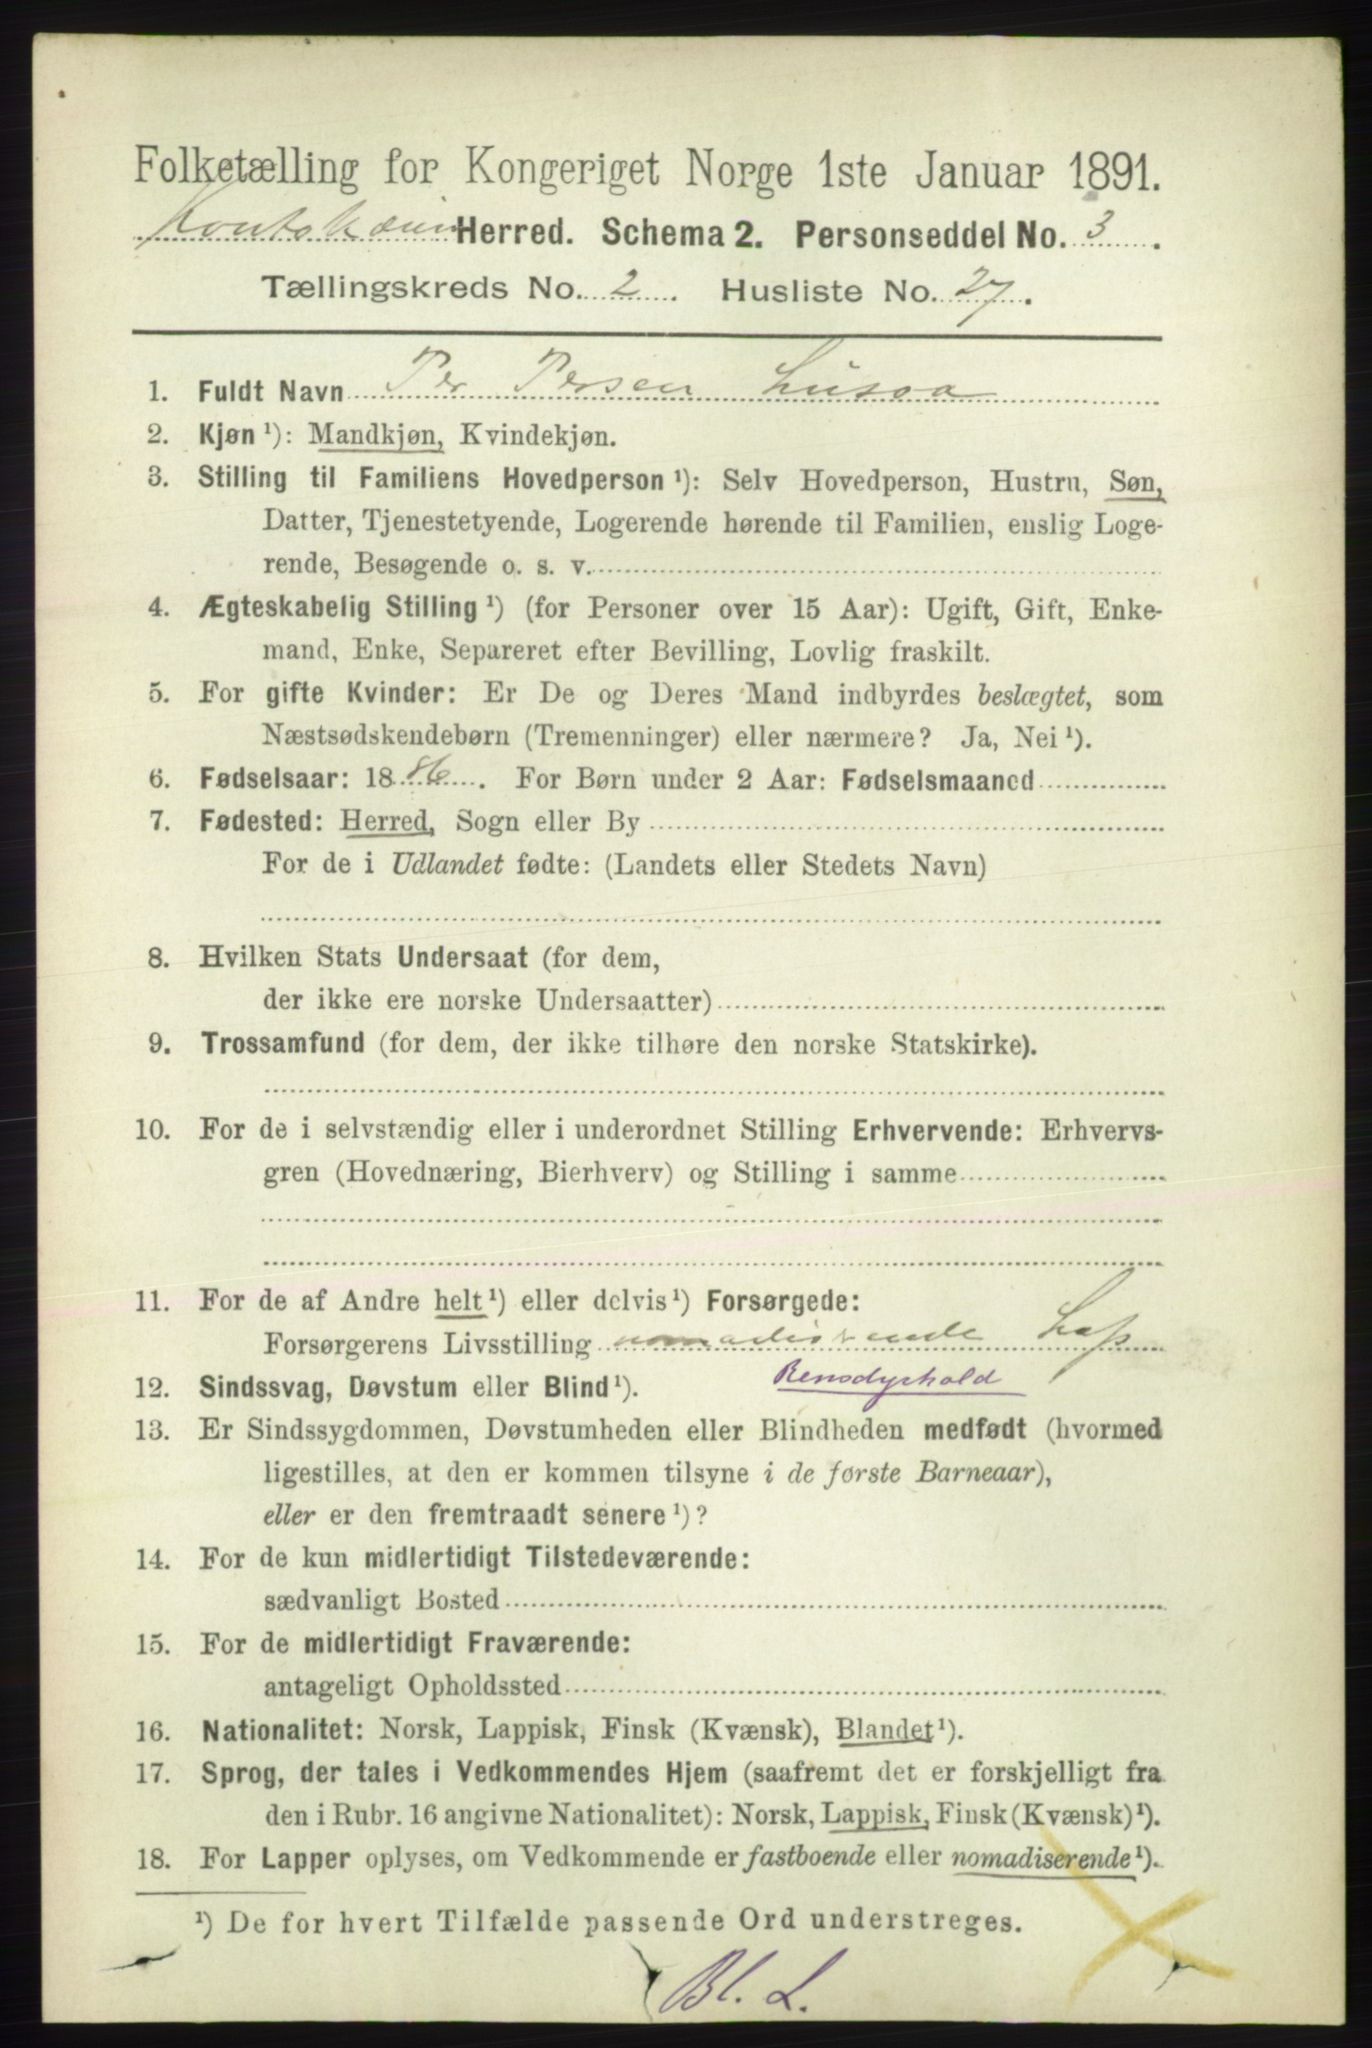 Folketælling for Kongeriget Norge 1ste Januar 1891.
Koutokæino Herred. Schema 2. Personseddel No. 3.
Tællingskreds No. 2. Husliste No. 27.
1. Fuldt Navn Per Persen Lusoa
2. Kjøn ¹): Mandkjøn, Kvindekjøn.
3. Stilling til Familiens Hovedperson ¹): Selv Hovedperson, Hustru, Søn,
Datter, Tjenestetyende, Logerende hørende til Familien, enslig Loge-
rende, Besøgende o. s. v.
4. Ægteskabelig Stilling ¹) (for Personer over 15 Aar): Ugift, Gift, Enke-
mand, Enke, Separeret efter Bevilling, Lovlig fraskilt.
5. For gifte Kvinder: Er De og Deres Mand indbyrdes beslægtet, som
Næstsødskendebørn (Tremenninger) eller nærmere? Ja, Nei ¹).
6. Fødselsaar: 1886. For Børn under 2 Aar: Fødselsmaaned
7. Fødested: Herred, Sogn eller By
For de i Udlandet fødte: (Landets eller Stedets Navn)
8. Hvilken Stats Undersaat (for dem,
der ikke ere norske Undersaatter)
9. Trossamfund (for dem, der ikke tilhøre den norske Statskirke).
10. For de i selvstændig eller i underordnet Stilling Erhvervende: Erhvervs-
gren (Hovednæring, Bierhverv) og Stilling i samme
11. For de af Andre helt ¹) eller delvis ¹) Forsørgede:
Forsørgerens Livsstilling nomadiserende Lap
12. Sindssvag, Døvstum eller Blind ¹). Rensdyrhold
13. Er Sindssygdommen, Døvstumheden eller Blindheden medfødt (hvormed
ligestilles, at den er kommen tilsyne i de første Barneaar),
eller er den fremtraadt senere ¹)?
14. For de kun midlertidigt Tilstedeværende:
sædvanligt Bosted
15. For de midlertidigt Fraværende:
antageligt Opholdssted
16. Nationalitet: Norsk, Lappisk, Finsk (Kvænsk), Blandet ¹).
17. Sprog, der tales i Vedkommendes Hjem (saafremt det er forskjelligt fra
den i Rubr. 16 angivne Nationalitet): Norsk, Lappisk, Finsk (Kvænsk) ¹).
18. For Lapper oplyses, om Vedkommende er fastboende eller nomadiserende ¹).
¹) De for hvert Tilfælde passende Ord understreges.
Bl. L.